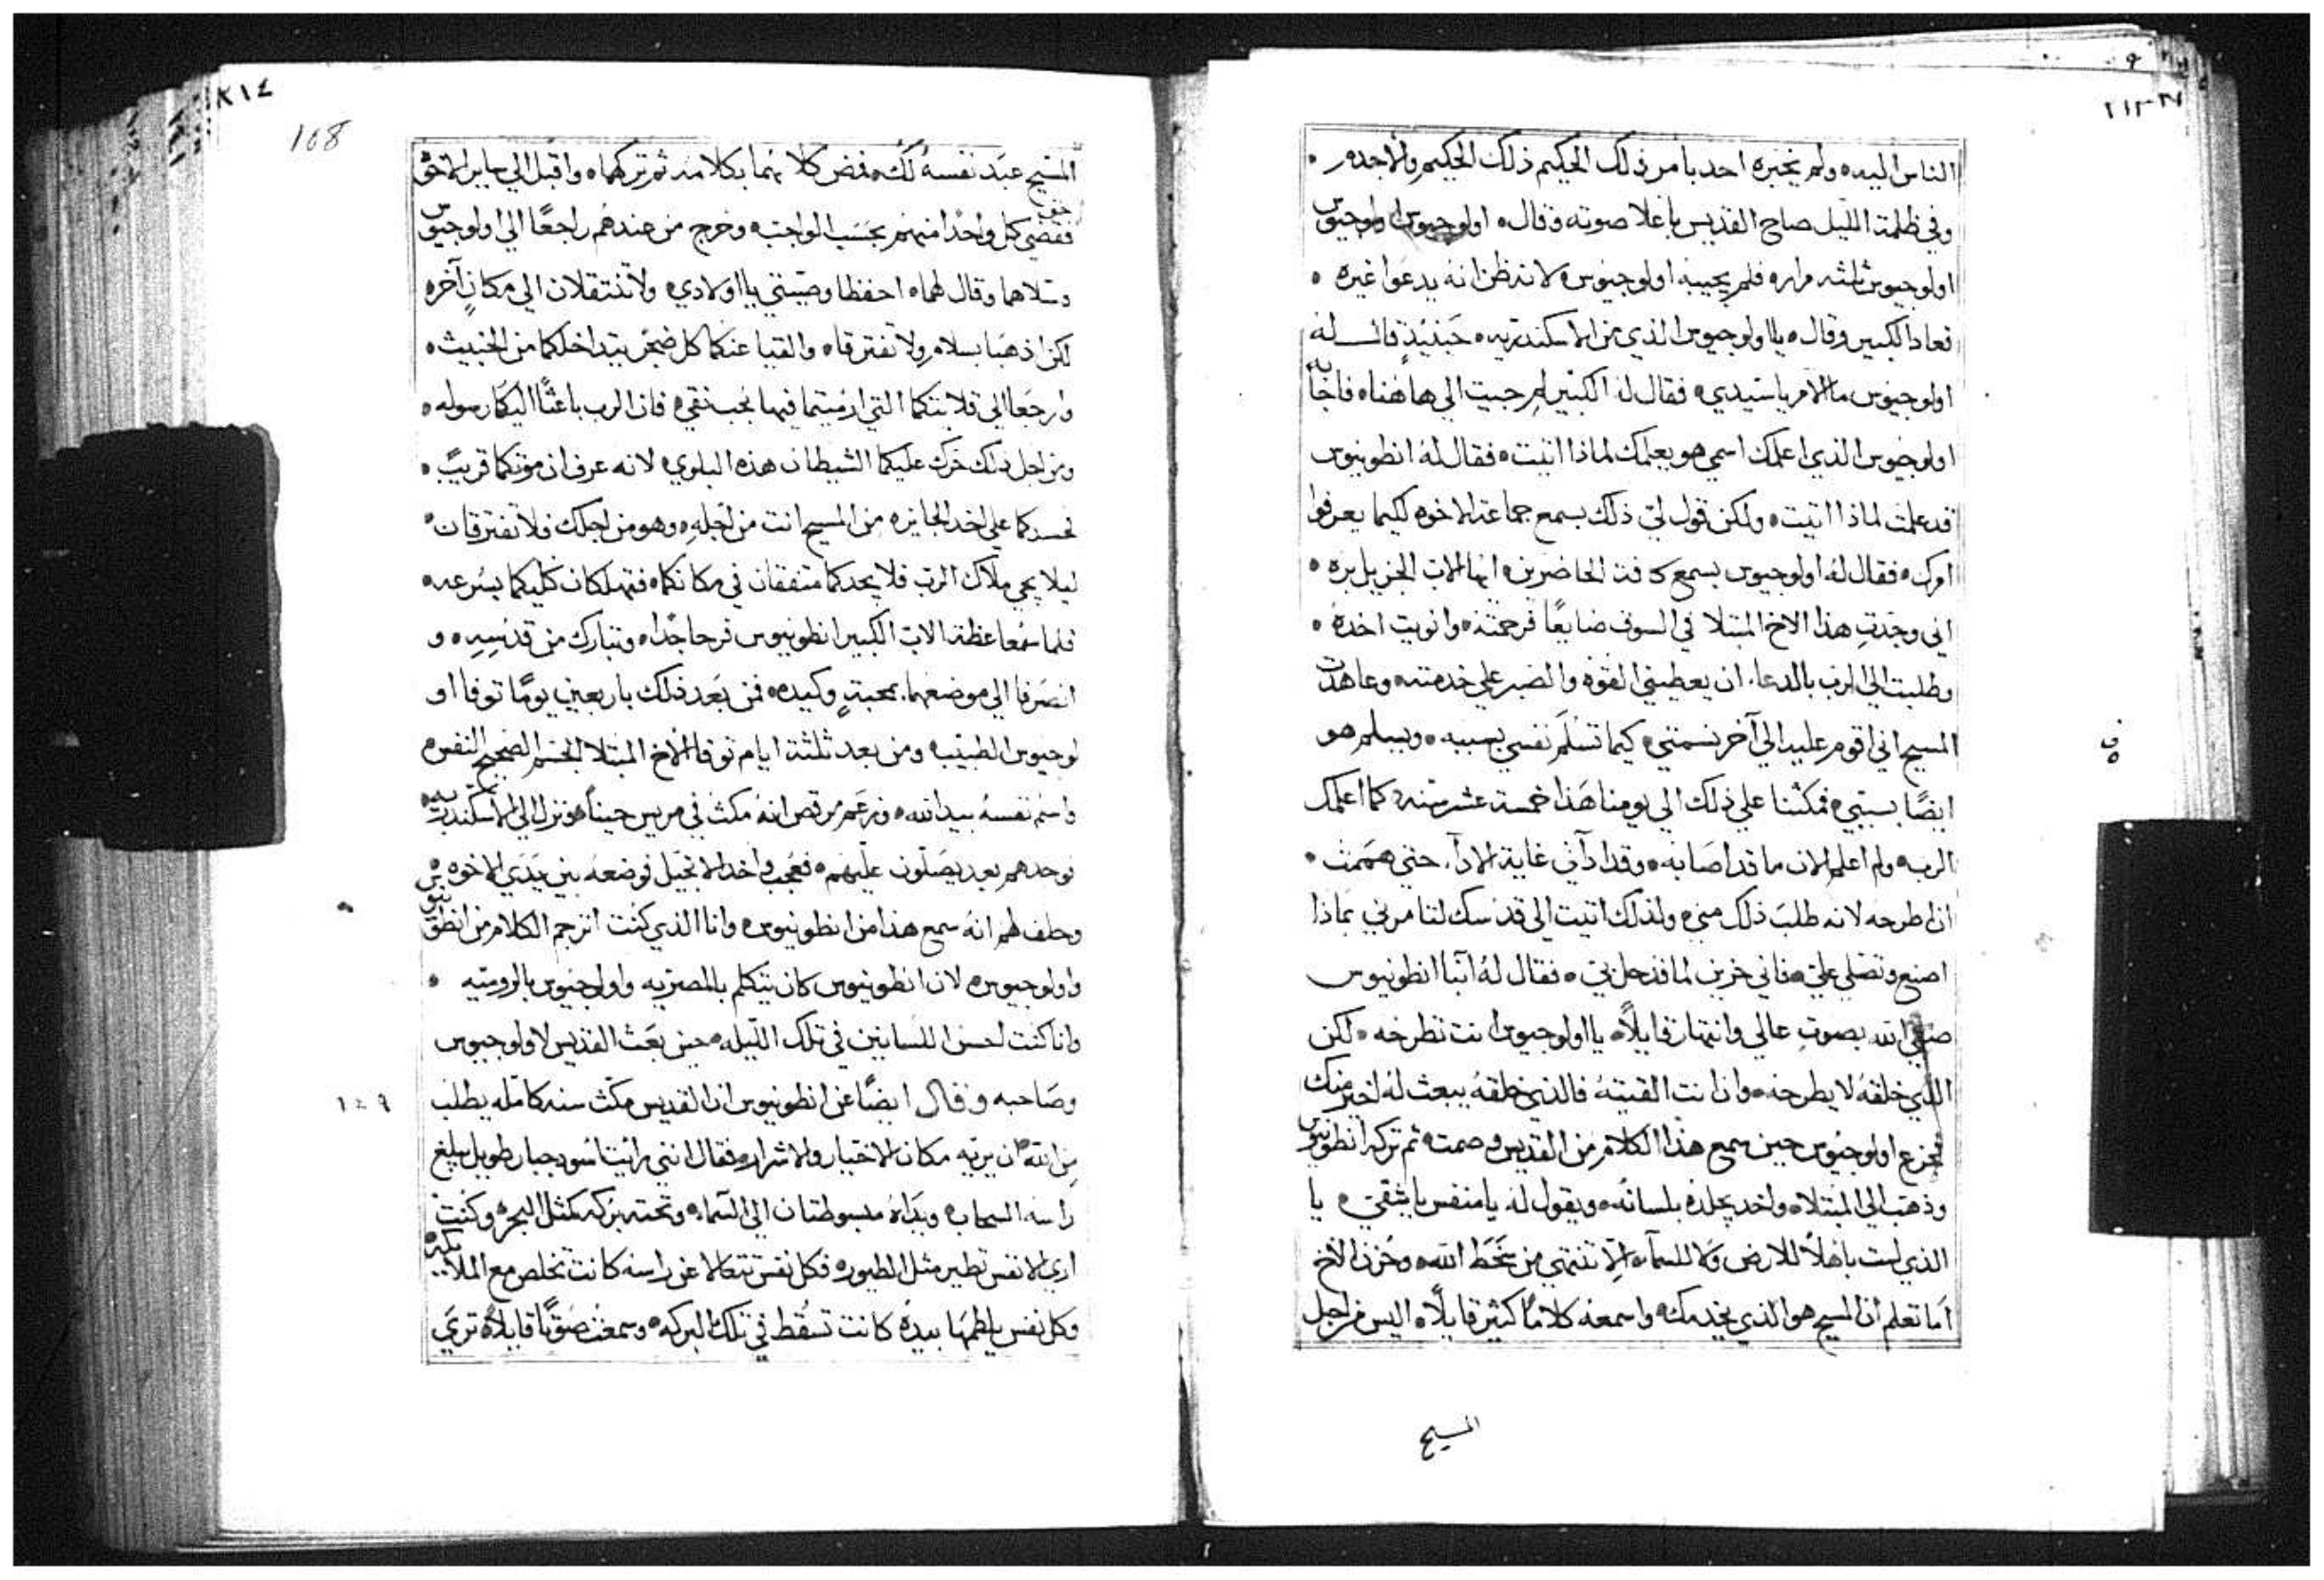 الناس اليه ولم يخبره احد بامر ذلك الحكيم ذلك الحكيم ولا جدم
وفي ظلمة الليل صاح القديس باعلا صوته وقال اولوجيوس اولوجيوس
اولوجيوس ثلثه مراره فلم يجيبه اولوجيوس لانه ظن انه يدعوا غيره
فعاد الكبير وقال يا اولوجيوس الذي من الاسكندريه حينيذٍ قال له
اولوجيوس ما الامر يا سيدي فقال له الكبير لم جييت الي هاهنا فاجابه
اولوجيوس الذي اعلمك اسمي هو يعلمك لماذا اتيت فقال له انطونيوس
قد علمت لماذا اتيت ولكن قول لي ذلك بسمع جماعة الاخوه لكيما يعرفوا
امرك فقال له اولوجيوس بسمع كافت الحاضرين ايها الاب الجزيل بره
اني وجدت هذا الاخ المبتلا في السوق ضايعًا فرحمته وانويت اخده
وطلبت الي الرب بالدعاء ان يعطيني القوه والصبر علي خدمته وعاهدت
المسيح اني اقوم عليه الي آخر نسمتي كيما تسلم نفسي بسببه ويسلم هو
ايضًا بسببي فمكثنا علي ذلك الي يومنا هذا خمسة عشر سنه كما اعلمك
الرب ولم اعلم الان ما قد اصابه وقد اداني غاية الادآ حتي هممت
ان اطرحه لانه طلب ذلك مني ولذلك اتيت الي قدسك لتامرني بماذا
اصنع وتصلي علي فاني حزين لما قد حل بي فقال له انبا انطونيوس
صفي الله بصوتٍ عالي وانتهار قايلاً يا اولوجيوس انت تطرحه لكن
الذي خلقه لا يطرحه وان انت القيته فالذي خلقه يبعث له اخير منك
فجزع اولوجيوس حين سمع هذا الكلام من القديس وصمت ثم تركه انطونيوس
وذهب الي المبتلا واخد يجلده بلسانه ويقول له يا منفس يا شقي يا
الذي لست باهلاً للارض ولا للسمآء الا تنتهي من سخط الله وحزن الاخ
اما تعلم ان المسيح هو الذي يخدمك واسمعه كلامًا كثير قايلاً اليس من اجل
المسيح
108
المسيح عبد نفسه لك فض كلا بهما بكلامه ثم تركهما واقبل الي حاير الاخوه
فقضي كل واحدًا منهم بحسب الواجب وخرج من عندهم راجعًا الي اولوجيوس
وسلاهما وقال لهما احفظا وصيتي يا اولادي ولا تنتقلان الي مكانٍ آخر
لكن اذهبا بسلام ولا تفترقا والقيا عنكما كل ضجر يتداخلكما من الخبيث
وارجعا الي قلايتكما التي ارميتما فيها بحب نقي فان الرب باعثًا اليكما رسوله
ومن اجل ذلك حرك عليكما الشيطان هذه البلوي لانه عرف ان موتكما قريب
لحسدكما علي اخد الجايزه من المسيح انت من اجله وهو من اجلك فلا تفترقان
ليلا يجي ملاك الرب فلا يجدكما متفقان في مكانكما فتهلكان كليكما بسرعه
فلما سمعا عظة الاب الكبير انطونيوس فرحا جدا وتبارك من قدسه و
انصرفا الي موضعهما بمحبةٍ وكيده فمن بعد ذلك باربعين يومًا توفا او
لوجيوس الطيب ومن بعد ثلثة ايام توفا الاخ المبتلا الجسم الصحيح النفس
واسلم نفسه بيد الله وزعم مرقص انه مكث في مريس حينا ونزل الي الاسكندريه
فوجدهم بعد يصلون عليهم فعجب واخد الانجيل فوضعه بين يدي الاخوه
وحلف لهم انه سمع هذا من انطونيوس وانا الذي كنت اترجم الكلام من انطونيوس
واولوجيوس لان انطونيوس كان يتكلم بالمصريه واولوجيوس بالروميه
وانا كنت احسن اللسانين في تلك الليله حين بعث القديس لاولوجيوس
وصاحبه وقال ايضًا عن انطونيوس ان القديس مكث سنه كامله يطلب
من الله ان يريه مكان الاخيار والاشرار فقال انني رايت اسود جبار طويل يبلغ
راسه السحاب ويداه مبسوطتان الي السماء وتحته بركه كمثل البحر وكنت
اري الانفس تطير مثل الطيور فكل نفس تتعالا عن راسه كانت تخلص مع الملايكه
وكل نفس يلطمها بيده كانت تسقط في تلك البركه وسمعت صوتًا قايلاً تري